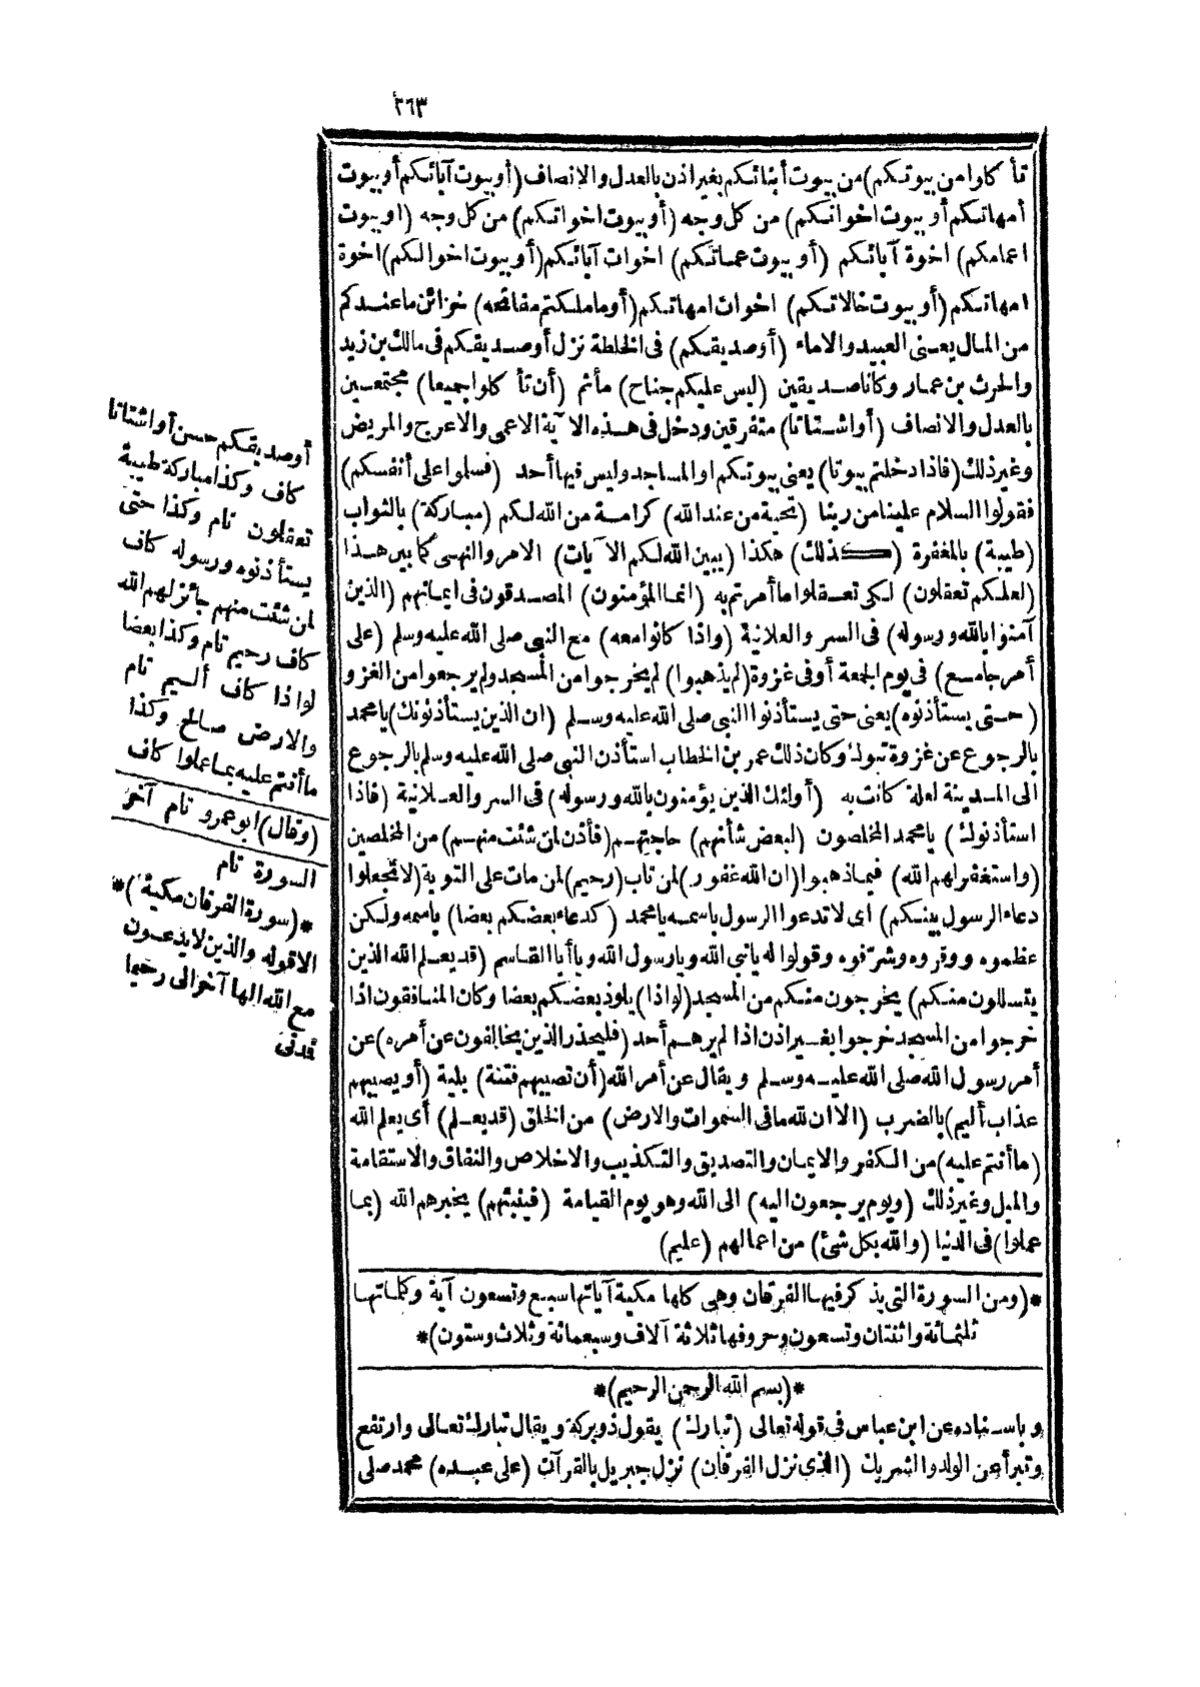 ٢٦٣
تأكلوا من بيوتكم) من بيوت أبنائكم بغير اذن بالعدل والانصاف (أو بيوت آبائكم أو بيوت
أمهاتكم أو بيوت اخوانكم) من كل وجه (أو بيوت اخواتكم) من كل وجه (او بيوت
اعمامكم) اخوة آبائكم (أو بيوت عماتكم) اخوات آبائكم (أو بيوت اخوالكم) اخوة
امهاتكم (أو بيوت خالاتكم) اخوات امهاتكم (أو ما ملكتم مفاتحه) خزائن ما عندكم
من المال يعنى العبيد والاماء (أو صديقكم) فى الخلطة نزل أو صديقكم فى مالك بن زيد
والحرث بن عمار وكانا صديقين (ليس عليكم جناح) مأثم (أن تأكلوا جميعا) مجتمعين
بالعدل والانصاف (أو اشتاتا) متفرقين ودخل فى هذه الآية الاعمى والاعرج والمريض
وغير ذلك (فاذا دخلتم بيوتا) يعنى بيوتكم او المساجد وليس فيها أحد (فسلموا على أنفسكم)
فقولوا السلام علينا من ربنا (تحية من عند الله) كرامة من الله لكم (مباركة) بالثواب
(طيبة) بالمغفرة (كذلك) هكذا (يبين الله لكم الآيات) الامر والنهى كما بين هذا
(لعلكم تعقلون) لكى تعقلوا ما أمرتم به (انما المؤمنون) المصدقون فى ايمانهم (الذين
آمنوا بالله ورسوله) فى السر والعلانية (واذا كانوا معه) مع النبى صلى الله عليه وسلم (على
أمر جامع) فى يوم الجمعة أو فى غزوة (لم يذهبوا) لم يخرجوا من المسجد ولم يرجعوا من الغزو
(حتى يستأذنوه) يعنى حتى يستأذنوا النبى صلى الله عليه وسلم (ان الذين يستأذنونك) يا محمد
بالرجوع عن غزوة تبوك وكان ذلك عمر بن الخطاب استأذن النبى صلى الله عليه وسلم بالرجوع
الى المدينة لعلة كانت به (أولئك الذين يؤمنون بالله ورسوله) فى السر والعلانية (فاذا
استأذنوك) يا محمد المخلصون (لبعض شأنهم) حاجتهم (فأذن لمن شئت منهم) من المخلصين
(واستغفر لهم الله) فيما ذهبوا (ان الله غفور) لمن تاب (رحيم) لمن مات على التوبة (لا تجعلوا
دعاء الرسول بينكم) اى لا تدعوا الرسول باسمه يا محمد (كدعاء بعضكم بعضا) باسمه ولكن
عظموه ووقروه وشرفوه وقولوا له يا نبى الله ويا رسول الله ويا أبا القاسم (قد يعلم الله الذين
يتسللون منكم) يخرجون منكم من المسجد (لواذا) يلوذ بعضكم بعضا وكان المنافقون اذا
خرجوا من المسجد خرجوا بغير اذن اذا لم يرهم أحد (فليحذر الذين يخالفون عن أمره) عن
أمر رسول الله صلى الله عليه وسلم ويقال عن أمر الله (أن تصيبهم فتنة) بلية (أو يصيبهم
عذاب أليم) بالضرب (الا ان لله ما فى السموات والارض) من الخلق (قد يعلم) أى يعلم الله
(ما أنتم عليه) من الكفر والايمان والتصديق والتكذيب والاخلاص والنفاق والاستقامة
والميل وغير ذلك (ويوم يرجعون اليه) الى الله وهو يوم القيامة (فينبئهم) يخبرهم الله (بما
عملوا) فى الدنيا (والله بكل شئ) من اعمالهم (عليم)
*(ومن السورة التى يذكر فيها الفرقان وهى كلها مكية آياتها سبع وتسعون آية وكلماتها
ثلثمائة واثنتان وتسعون وحروفها ثلاثة آلاف وسبعمائة وثلاث وستون)*
*(بسم الله الرحمن الرحيم)*
وباسناده عن ابن عباس فى قوله تعالى (تبارك) يقول ذو بركة ويقال تبارك تعالى وارتفع
وتبرأ عن الولد والشريك (الذى نزل الفرقان) نزل جبريل بالقرآن (على عبده) محمد صلى
أو صديقكم حسن أو اشتاتا
كاف وكذا مباركة طيبة
تعقلون تام وكذا حتى
يستأذنوه ورسوله كاف
لمن شئت منهم جائز لهم الله
كاف رحيم تام وكذا بعضا
لواذا كاف أليم تام
والارض صالح وكذا
ما أنتم عليه بما عملوا كاف
(وقال) ابو عمرو تام آخر
السورة تام
*(سورة الفرقان مكية)*
الا قوله والذين لا يدعون
مع الله الها آخر الى رحيما
فمدنى